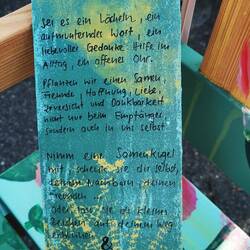 Sei es ein Lächeln, ein
aufmunterndes Wort, ein
liebevoller Gedanke, Hilfe im
Alltag, ein offenes Ohr.
Pflanzen wir einen Samen,
Freude, Hoffnung, Liebe,
Zuversicht und Dankbarkeit
nicht nur beim Empfänger,
sondern auch in uns selbst.
Nimm eine Samenkugel
mit, schenke sie dir selbst,
deinen Nachbarn, deinen
Oder lass sie als kleines
Zeichen auf deinem Weg
&